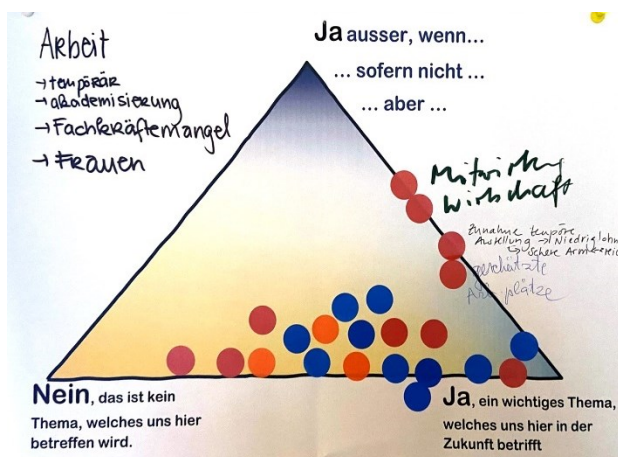 Arbeit
→ temporär
→ akademisierung
→ Fachkräftemangel
→ Frauen
Ja ausser, wenn...
... sofern nicht ...
... aber ...
Wirtschaft
Zunahme tempöre
→ Niedriglohn
→ Schere
geschützte
plätze
Nein, das ist kein
Thema, welches uns hier
betreffen wird.
Ja, ein wichtiges Thema,
welches uns hier in der
Zukunft betrifft